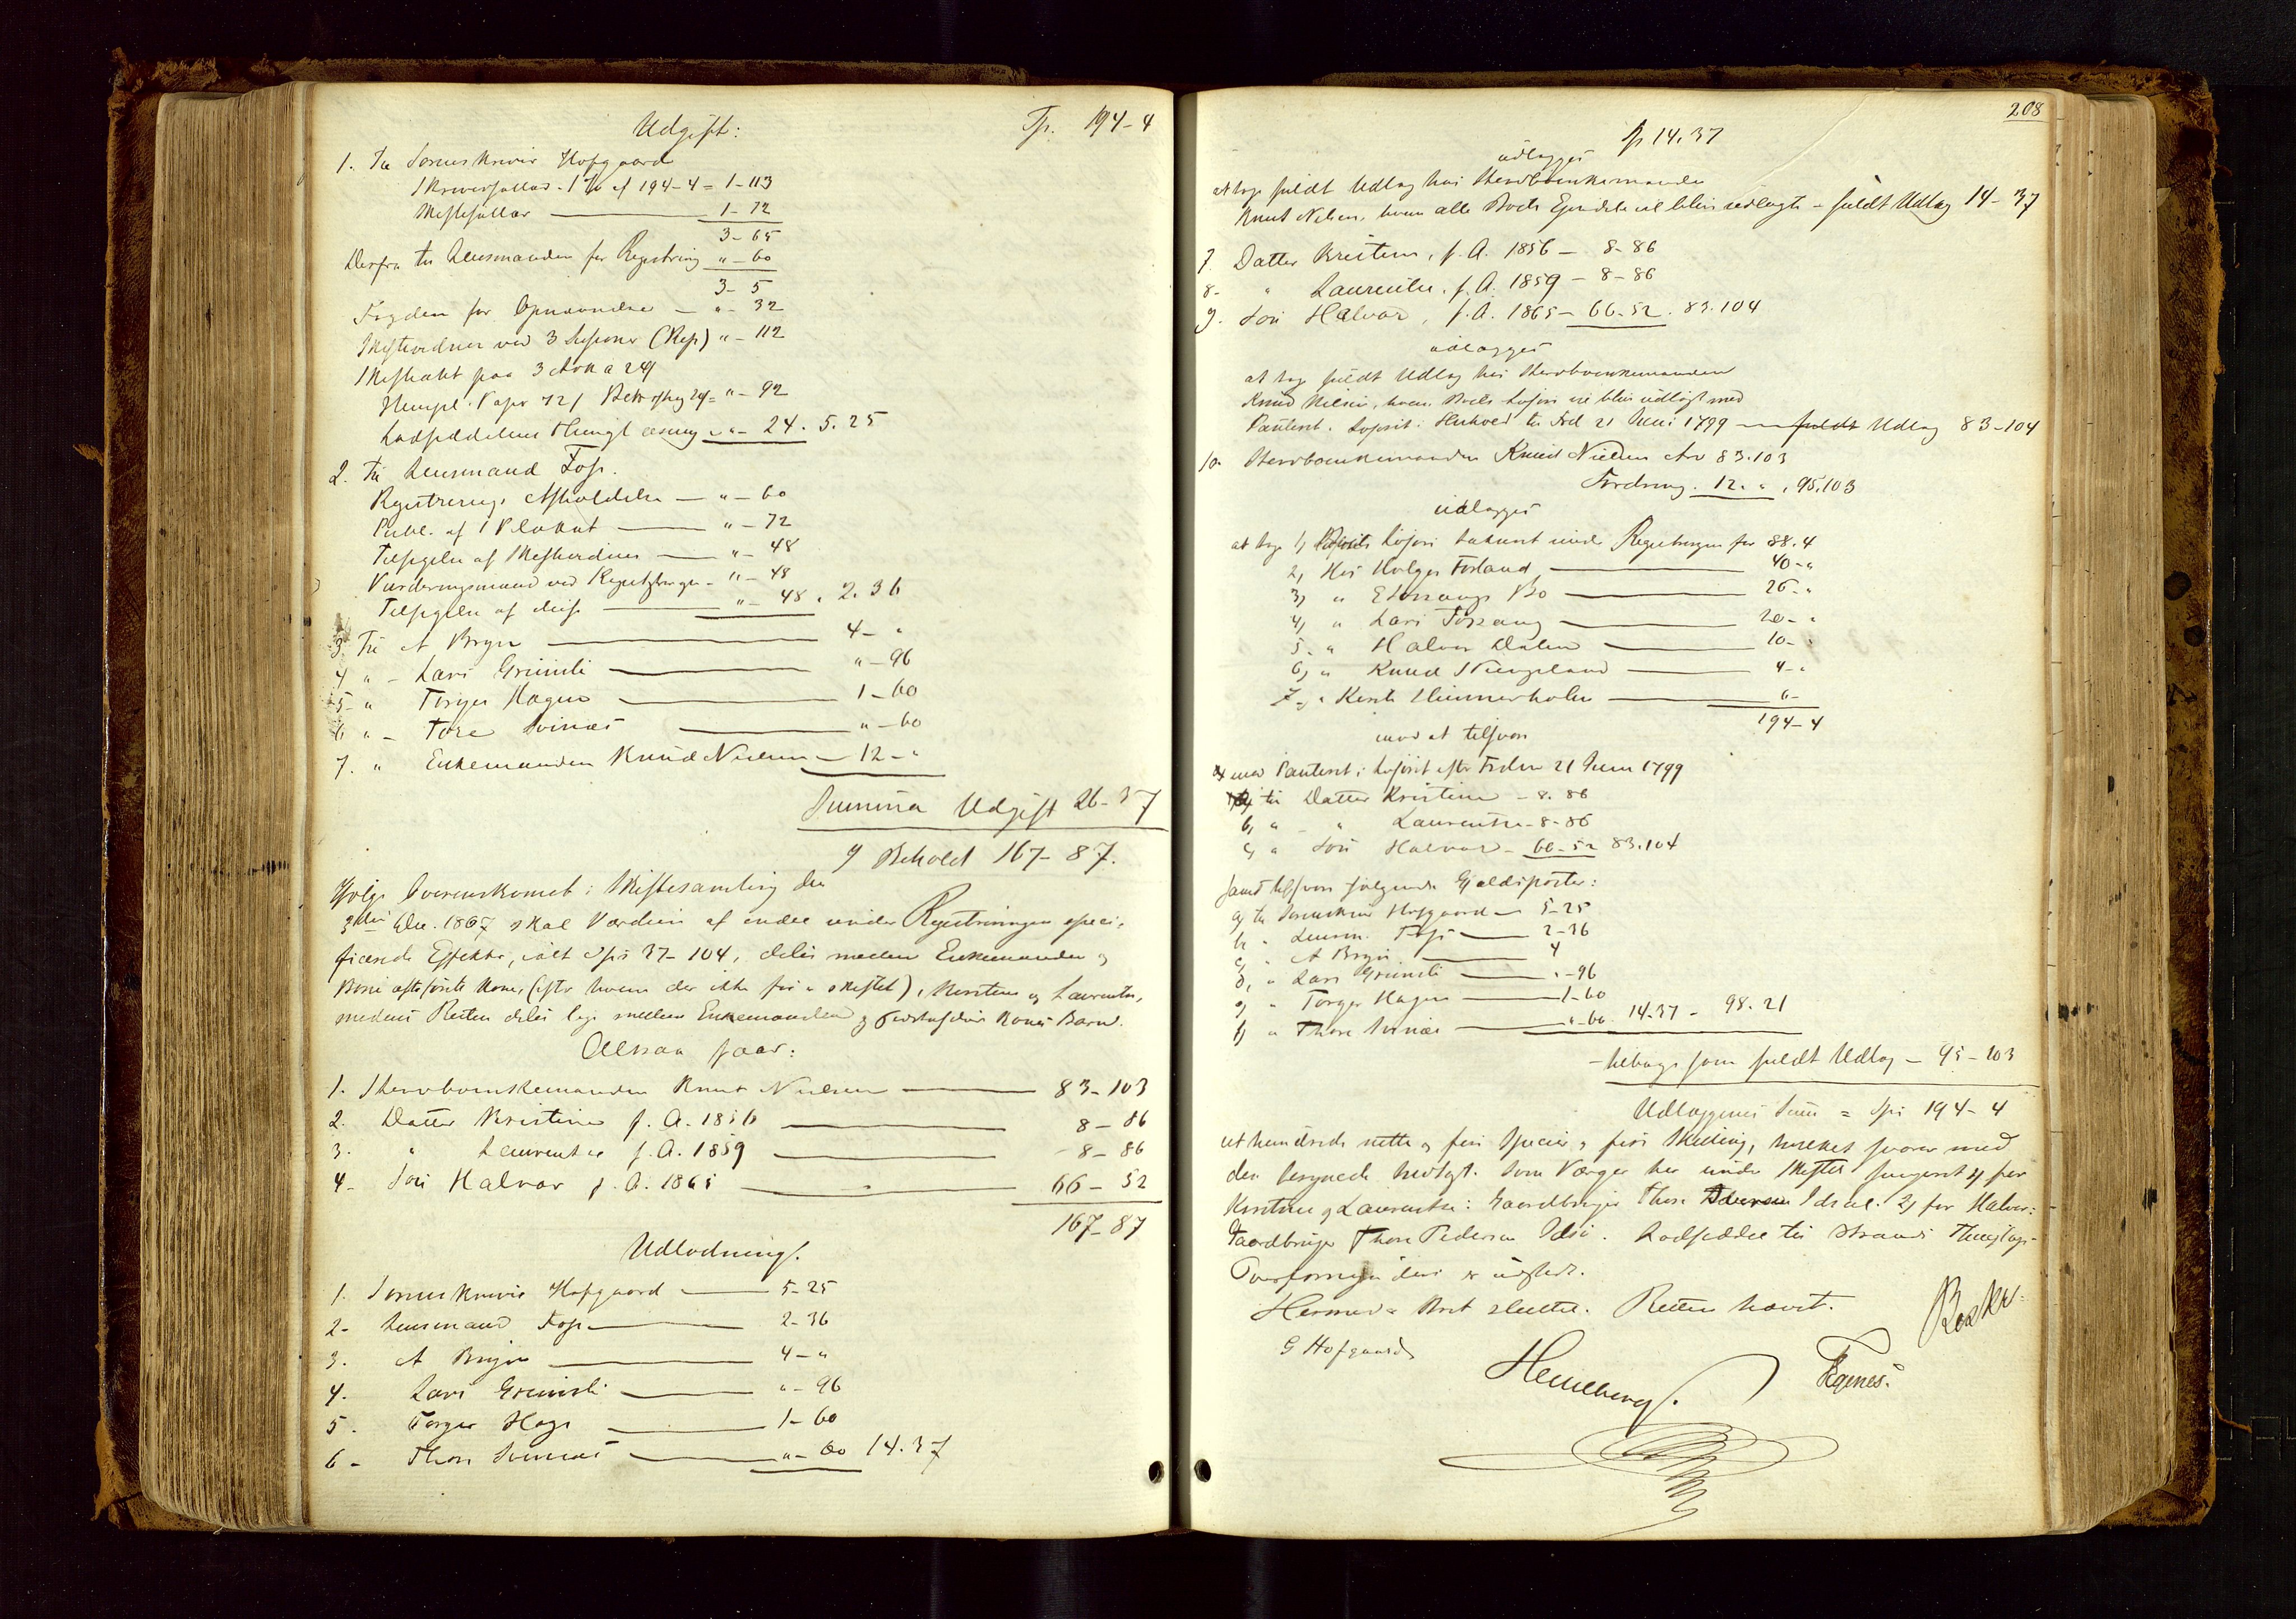 Udgift: Sp. 194-4
1. Til Sorenskriver Hofgaard
Skriversallar. 1 % af 194-4 = 1-113
Skiftesallar 1-72
3-65
Derfra til Lensmanden for Registrering "-60
3-5
Fogden for "-32
ved 3 (Rep) "-112
paa 3 Ark a 24
Stempl. Papir 72 "-92
Lodseddelens "-24. 5.25
2. Til Lensmand Foss.
Registrerings Afholdelse - "-60
Publ. af 1 Plakat "-72
Tilsigelse af "-48
Vurderingsmænd ved Registreringen - "-48
Tilsigelse af disse "-48. 2.36
3. Til A Bryn 4-"
4 " - Lars Grimsli "-96
5- " Torger Hagen 1-60
6 " - Tore Svinæs "-60
7. " Enkemanden Knud Nielsen - 12-"
Summa Udgift 26-37
I Behold 167-87.
Ifølge Overenskomst i Skiftesamling den
3die Dec. 1867 skal Værdien af endel under Registreringen speci-
ficerede Effekter, ialt Spd 37-104, deles mellem Enkemanden og
afdøde Kone, (efter hvem der ikke før er skiftet), Kirstine og Laurentse,
medens Resten deles lige mellem Enkemanden og Kones Barn.
Altsaa faar:
1. Stervboenkemanden Knut Nielsen 83-103
2. Datter Kristine f. A. 1856 8-86
3. " Laurentse f. A. 1859 8-86
4- Søn Halvor f. A. 1865 66-52
167-87
Udlodning.
1. Sorenskriver Hofgaard 5-25
2- Lensmand Foss 2-36
3. A Bryn 4-"
4. Lars Grimsli "-96
5. Torger Hage 1-60
6- Thore Svinæs "-60 14.37
208
Sp 14.37
udlægges
at tage fuldt Udlæg hos Stervboenkemanden
Knut Nielsen, hvem alle Boets Eiendele vil blive udlagte - fuldt Udlæg 14-37
7. Datter Kristine, f. A. 1856 - 8-86
8- " Laurentse, f. A. 1859 - 8-86
9. Søn Halvor, f. A. 1865 - 66-52. 83.104
udlægges
at tage fuldt Udlæg hos Stervboenkemanden
Knud Nielsen, hvem Boets Løsøre vil blive udlagt med
Panteret i Løsøret i Henhold til Frd 21 Juni 1799 - fuldt Udlæg 83-104
10. Stervboenkemanden Knud Nielsen Arv 83.103
Fordring 12. " . 95.103
udlægges
at tage 1, Boets Løsøre takseret under Registreringen for 88.4
2, Hos Holger Forland 40-"
3, " Bo 26-"
4, " Lars 20-"
5. " Halvor Dalen 10-"
6, " Knud 4-"
7. " 6-
194-4
mod at tilsvare
med Panteret i Løsøret efter Frdn 21 Juni 1799
a, til Datter Kristine - 8.86
b, " " Laurentse - 8-86
c, " Søn Halvor - 66-52 83.104
samt tilsvare følgende Gjældsposter:
a, til Sorenskriver Hofgaard - 5-25
b, " Lensm. Foss 2-36
c, " A Bryn 4
d, " Lars Grimsli "-96
e, " Torger Hagen 1-60
f, " Thore Svinæs "-60 14.37 - 98.21
- tilbage som fuldt Udlæg - 95-103
Udlæggenes Sum = Spd 194-4
et hundrede nitti og fire Species og fire Skilling, hvilket svarer med
den beregnede Indtægt. Som Værger har under Skiftet fungeret 1, for
Kirstine og Laurentse: Gaardbruger Thore Idsal. 2, for Halvor:
Gaardbruger Thore Pedersen Idsø. Lodseddel til Strands Thinglags
Overformynderi er udstedt.
Hermed er Boet sluttet. Retten hævet.
G Hofgaard
Henneberg.